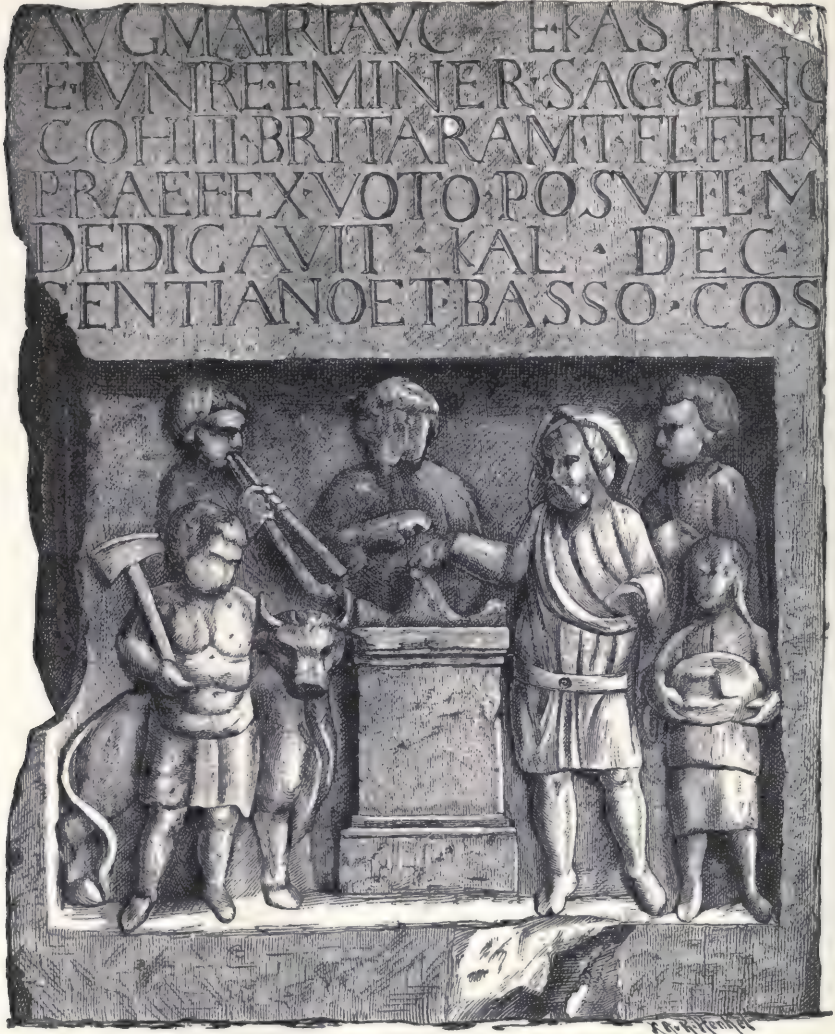 AVGMATRIAVG EKASTI
ETIVNREEMINER·SACGENC
COHIII·BRITARAMT·FLFELIX
PRAEFEX·VOTO·POSVITLM
DEDICAVIT·KAL·DEC·
SENTIANOETBASSO·COS